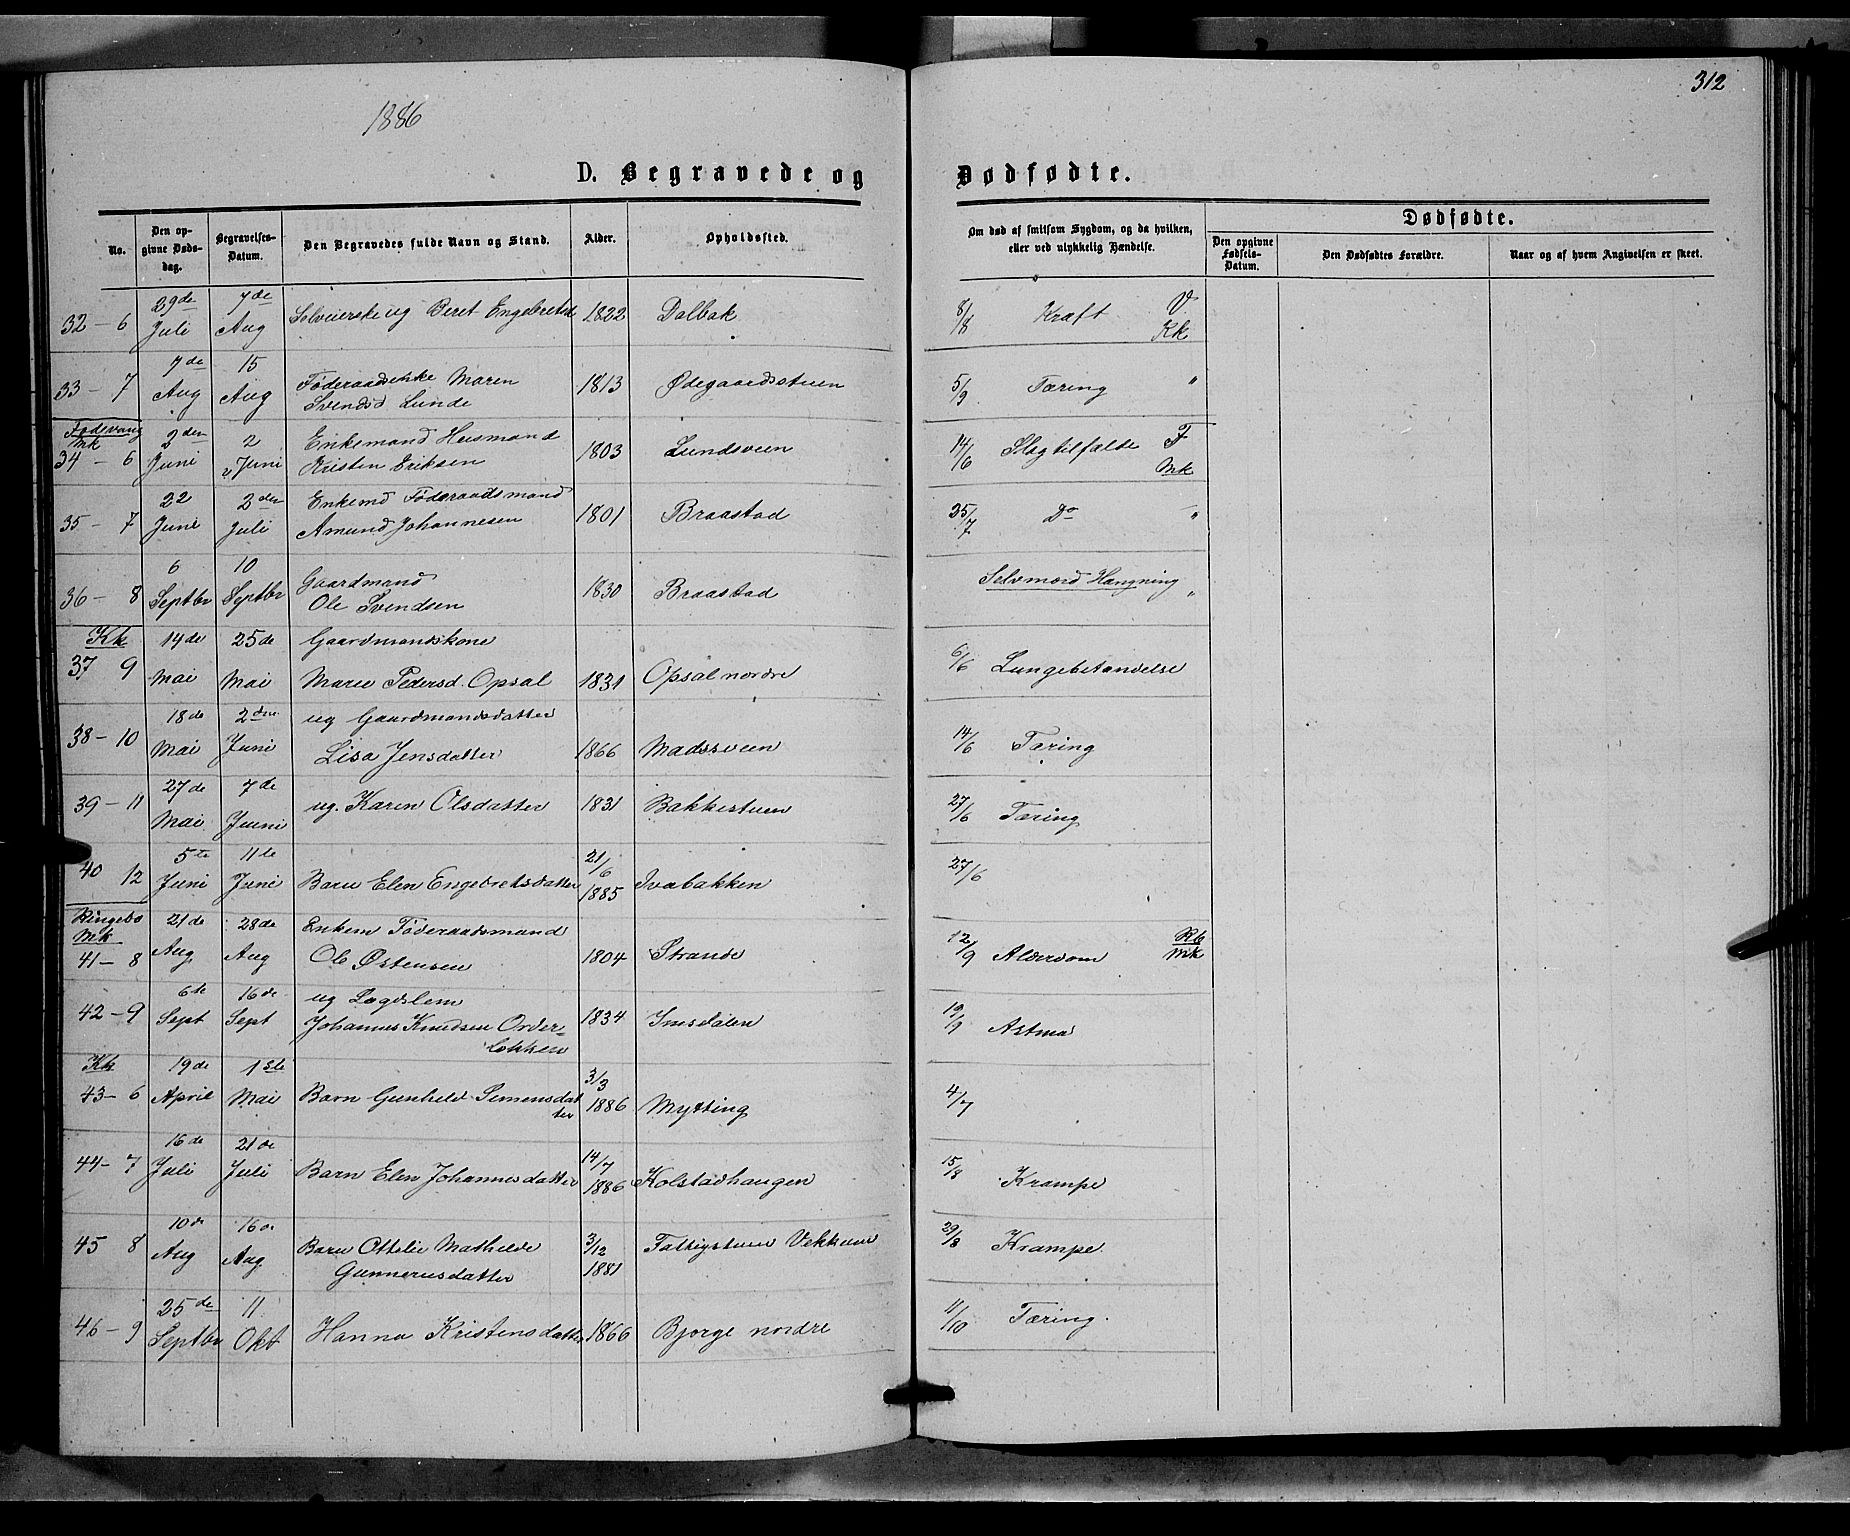 1886
312
D. Begravede og Dødfødte.
No.
Den opgivne Dødsdag.
Begravelses-Datum.
Den Begravedes fulde Navn og Stand.
Alder.
Opholdssted.
Om død af smitsom Sygdom, og da hvilken, eller ved ulykkelig Hændelse.
Dødfødte.
Den opgivne Fødsels-Datum.
Den Dødfødtes Forældre.
Naar og af hvem Angivelsen er skeet.
32 - 6 29de Juli 7de Aug ug Beret Engebretsd 1822 Dalbak 8/8 Kræft V Kk
33 - 7 7de Aug 15 Aug Føderaadsenke Maren
Svendsd Lunde 1813 Ødegaardsstuen 5/9 Tæring "
Fodevang Mk
34 - 6 2den Juni 2 Juni Enkemand Husmand
Kristen Eriksen 1803 Lundsveen 14/6 Slagtilfælde F Mk
35 - 7 22 Juni 2den Juli Enkemd Føderaadsmand
Amund Johannesen 1801 Braastad 25/7 Do "
36 - 8 6 Septbr 10 Septbr Gaardmand
Ole Svendsen 1830 Braastad Selvmord Hængning "
Kk
37 9 14de Mai 25de Mai Gaardmandskone
Marie Pedersd. Opsal 1831 Opsal nordre 6/6 Lungebetændelse
38 - 10 18de Mai 2den Juni ug Gaardmandsdatter
Lisa Jensdatter 1866 Madssveen 14/6 Tæring
39 - 11 27de Mai 7de Juni ug. Karen Olsdatter 1831 Bakkestuen 27/6 Tæring
40 12 5te Juni 11te Juni Barn Elen Engebretsdatter 21/6 1885 Ivabakken 27/6
Ringebo Mk
41 - 8 21de Aug. 28de Aug Enkem Føderaadsmand
Ole Østensen 1804 Strande 12/9 Alderdom Rb Mk
42 - 9 6te Sept 16de Sept ug Lægdslem
Johannes Knudsen Order-
løkken 1834 Imsdalen 19/9 Astma
Kk
43 - 6 19de April 1ste Mai Barn Gunhild Simensdat
ter 3/3 1886 Mytting 4/7
44 - 7 16de Juli 21de Juli Barn Elen Johannesdatter 14/7 1886 Kolstadhaugen 15/8 Krampe
45 8 10de Aug 16de Aug Barn Ottelie Mathilde
Gunnerusdatter 3/12 1881 Fattigstuen Vekkum 29/8 Krampe.
46 - 9 25de Septbr 11 Okt Hanna Kristensdatter 1866 Bjørge nordre 11/10 Tæring.